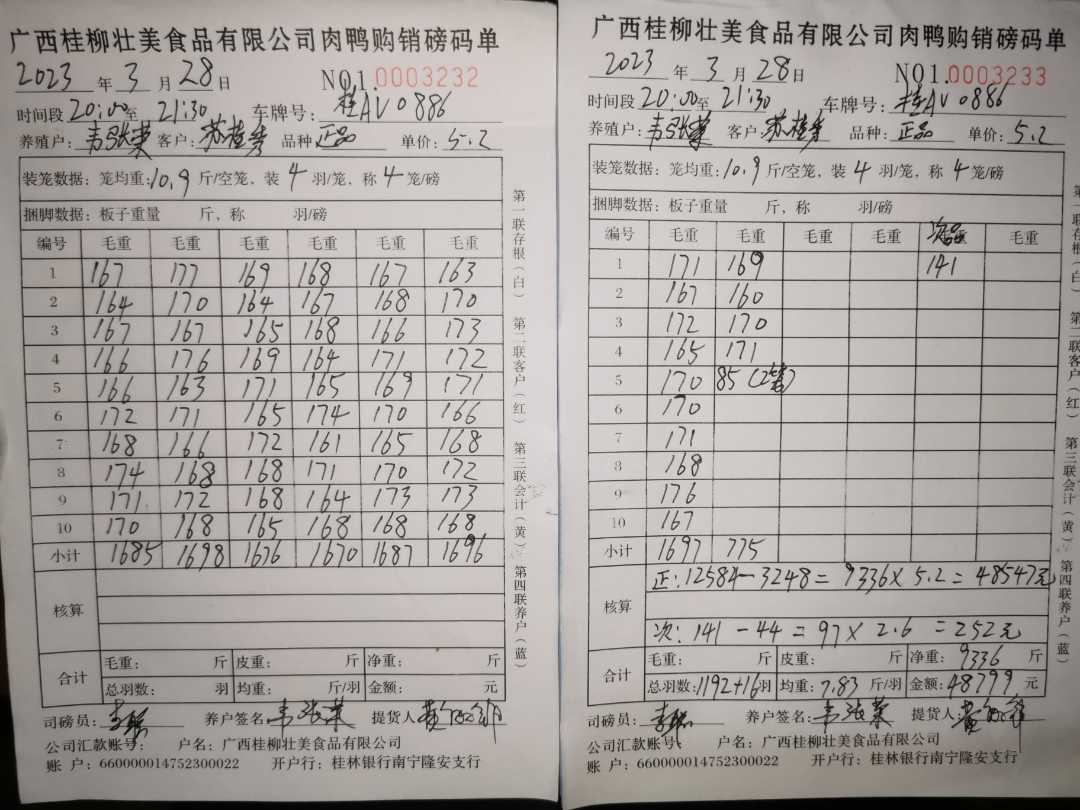 广西桂柳壮美食品有限公司肉鸭购销磅码单
2023 年 3 月 28 日 NO1.0003232
时间段 20:00 至 21:30 车牌号: 桂AV0886
养殖户: 韦张荣 客户: 苏桂 品种: 正品 单价: 5.2
装笼数据: 笼均重: 10.9 斤/空笼, 装 4 羽/笼, 称 4 笼/磅
捆脚数据: 板子重量 斤, 称 羽/磅
编号 毛重 毛重 毛重 毛重 毛重 毛重
1 167 177 169 168 167 163
2 164 170 164 167 168 170
3 167 167 165 168 166 173
4 166 176 169 164 171 172
5 166 163 171 165 169 171
6 172 171 165 174 170 166
7 168 166 172 161 165 168
8 174 168 168 171 170 172
9 171 172 168 164 173 173
10 170 168 165 168 168 168
小计 1685 1698 1676 1670 1687 1696
核算
合计 毛重: 斤 皮重: 斤 净重: 斤
总羽数: 羽 均重: 斤/羽 金额: 元
司磅员: 养户签名: 韦张荣 提货人:
公司汇款账号: 户名: 广西桂柳壮美食品有限公司
账 户: 660000014752300022 开户行: 桂林银行南宁隆安支行
第一联存根(白) 第二联客户(红) 第三联会计(黄) 第四联养户(蓝)
广西桂柳壮美食品有限公司肉鸭购销磅码单
2023 年 3 月 28 日 NO1.0003233
时间段 20:00 至 21:30 车牌号: 桂AV0886
养殖户: 韦张荣 客户: 苏桂 品种: 正品 单价: 5.2
装笼数据: 笼均重: 10.9 斤/空笼, 装 4 羽/笼, 称 4 笼/磅
捆脚数据: 板子重量 斤, 称 羽/磅
编号 毛重 毛重 毛重 毛重 次品 毛重
1 171 169 141
2 167 160
3 172 170
4 165 171
5 170 85 (2笼)
6 170
7 171
8 168
9 176
10 167
小计 1697 775
核算 正: 12584-3248=9336×5.2=48547元
次: 141-44=97×2.6=252元
合计 毛重: 斤 皮重: 斤 净重: 9336 斤
总羽数: 1192+16 羽 均重: 7.83 斤/羽 金额: 48799 元
司磅员: 养户签名: 韦张荣 提货人:
公司汇款账号: 户名: 广西桂柳壮美食品有限公司
账 户: 660000014752300022 开户行: 桂林银行南宁隆安支行
第一联存根(白) 第二联客户(红) 第三联会计(黄) 第四联养户(蓝)